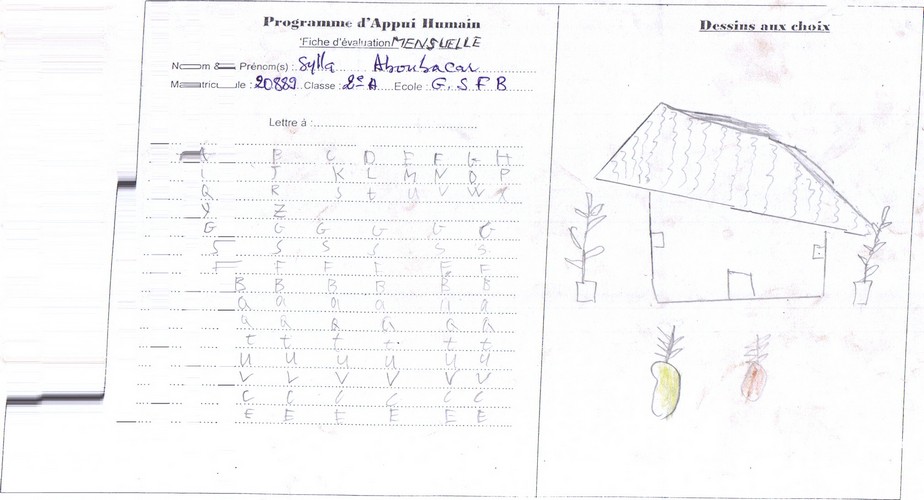 Programme d'Appui Humain
Fiche d'évaluation MENSUELLE
Nom & Prénom(s) : Sylla Aboubacar
Matricule : 20889 Classe : 2e A Ecole : G. S F B
Lettre à :
A B C D E F G H
I J K L M N O P
Q R S t U V W X
Y Z
G G G G G G
S S S S S S
F F F F F F
B B B B B B
a a a a a a
Q Q Q Q Q Q
t t t t t t
U U U U U U
V V V V V V
C C C C C C
E E E E E E
Dessins aux choix